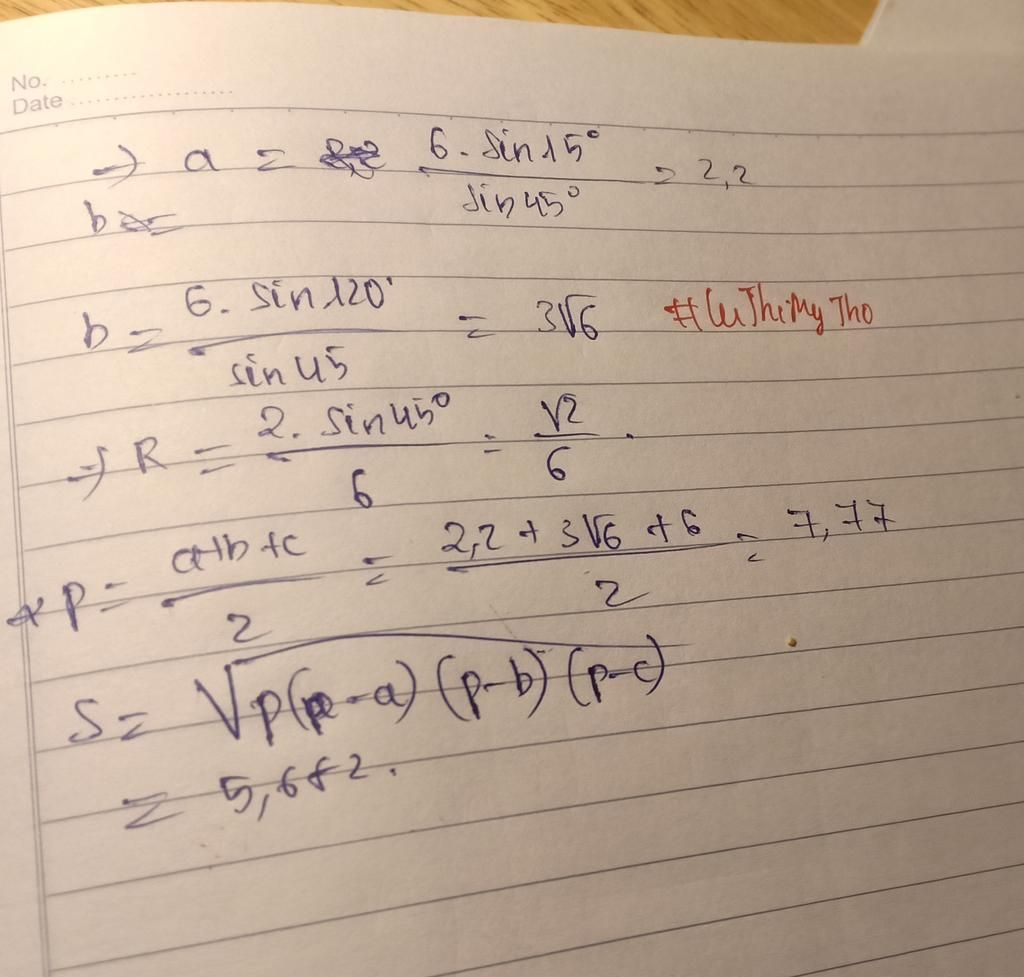 No. ..........
Date ......................
→ a = 6. sin 15° / sin 45° = 2,2
b =
b = 6. sin 120° / sin 45 = 3√6
→ R = 2. sin 45° / 6 = √2 / 6 .
* p = a+b+c / 2 = 2,2 + 3√6 + 6 / 2 = 7,77
S = √p(p-a)(p-b)(p-c)
= 5,682.